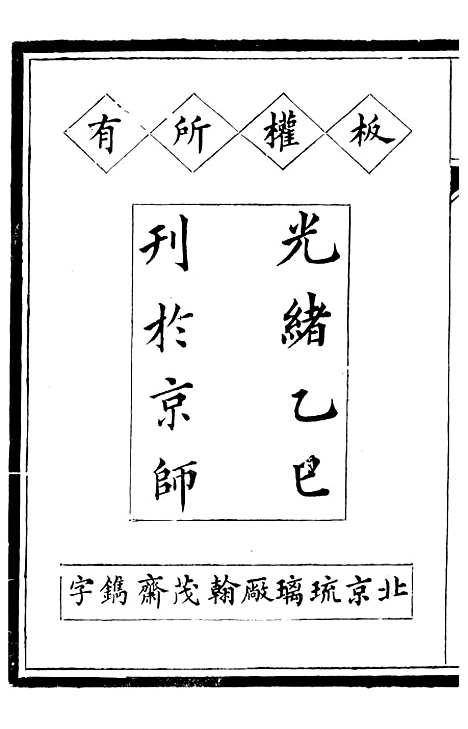 板權所有
光緒乙巳
刊於京師
北京琉璃厰翰茂齋鐫字